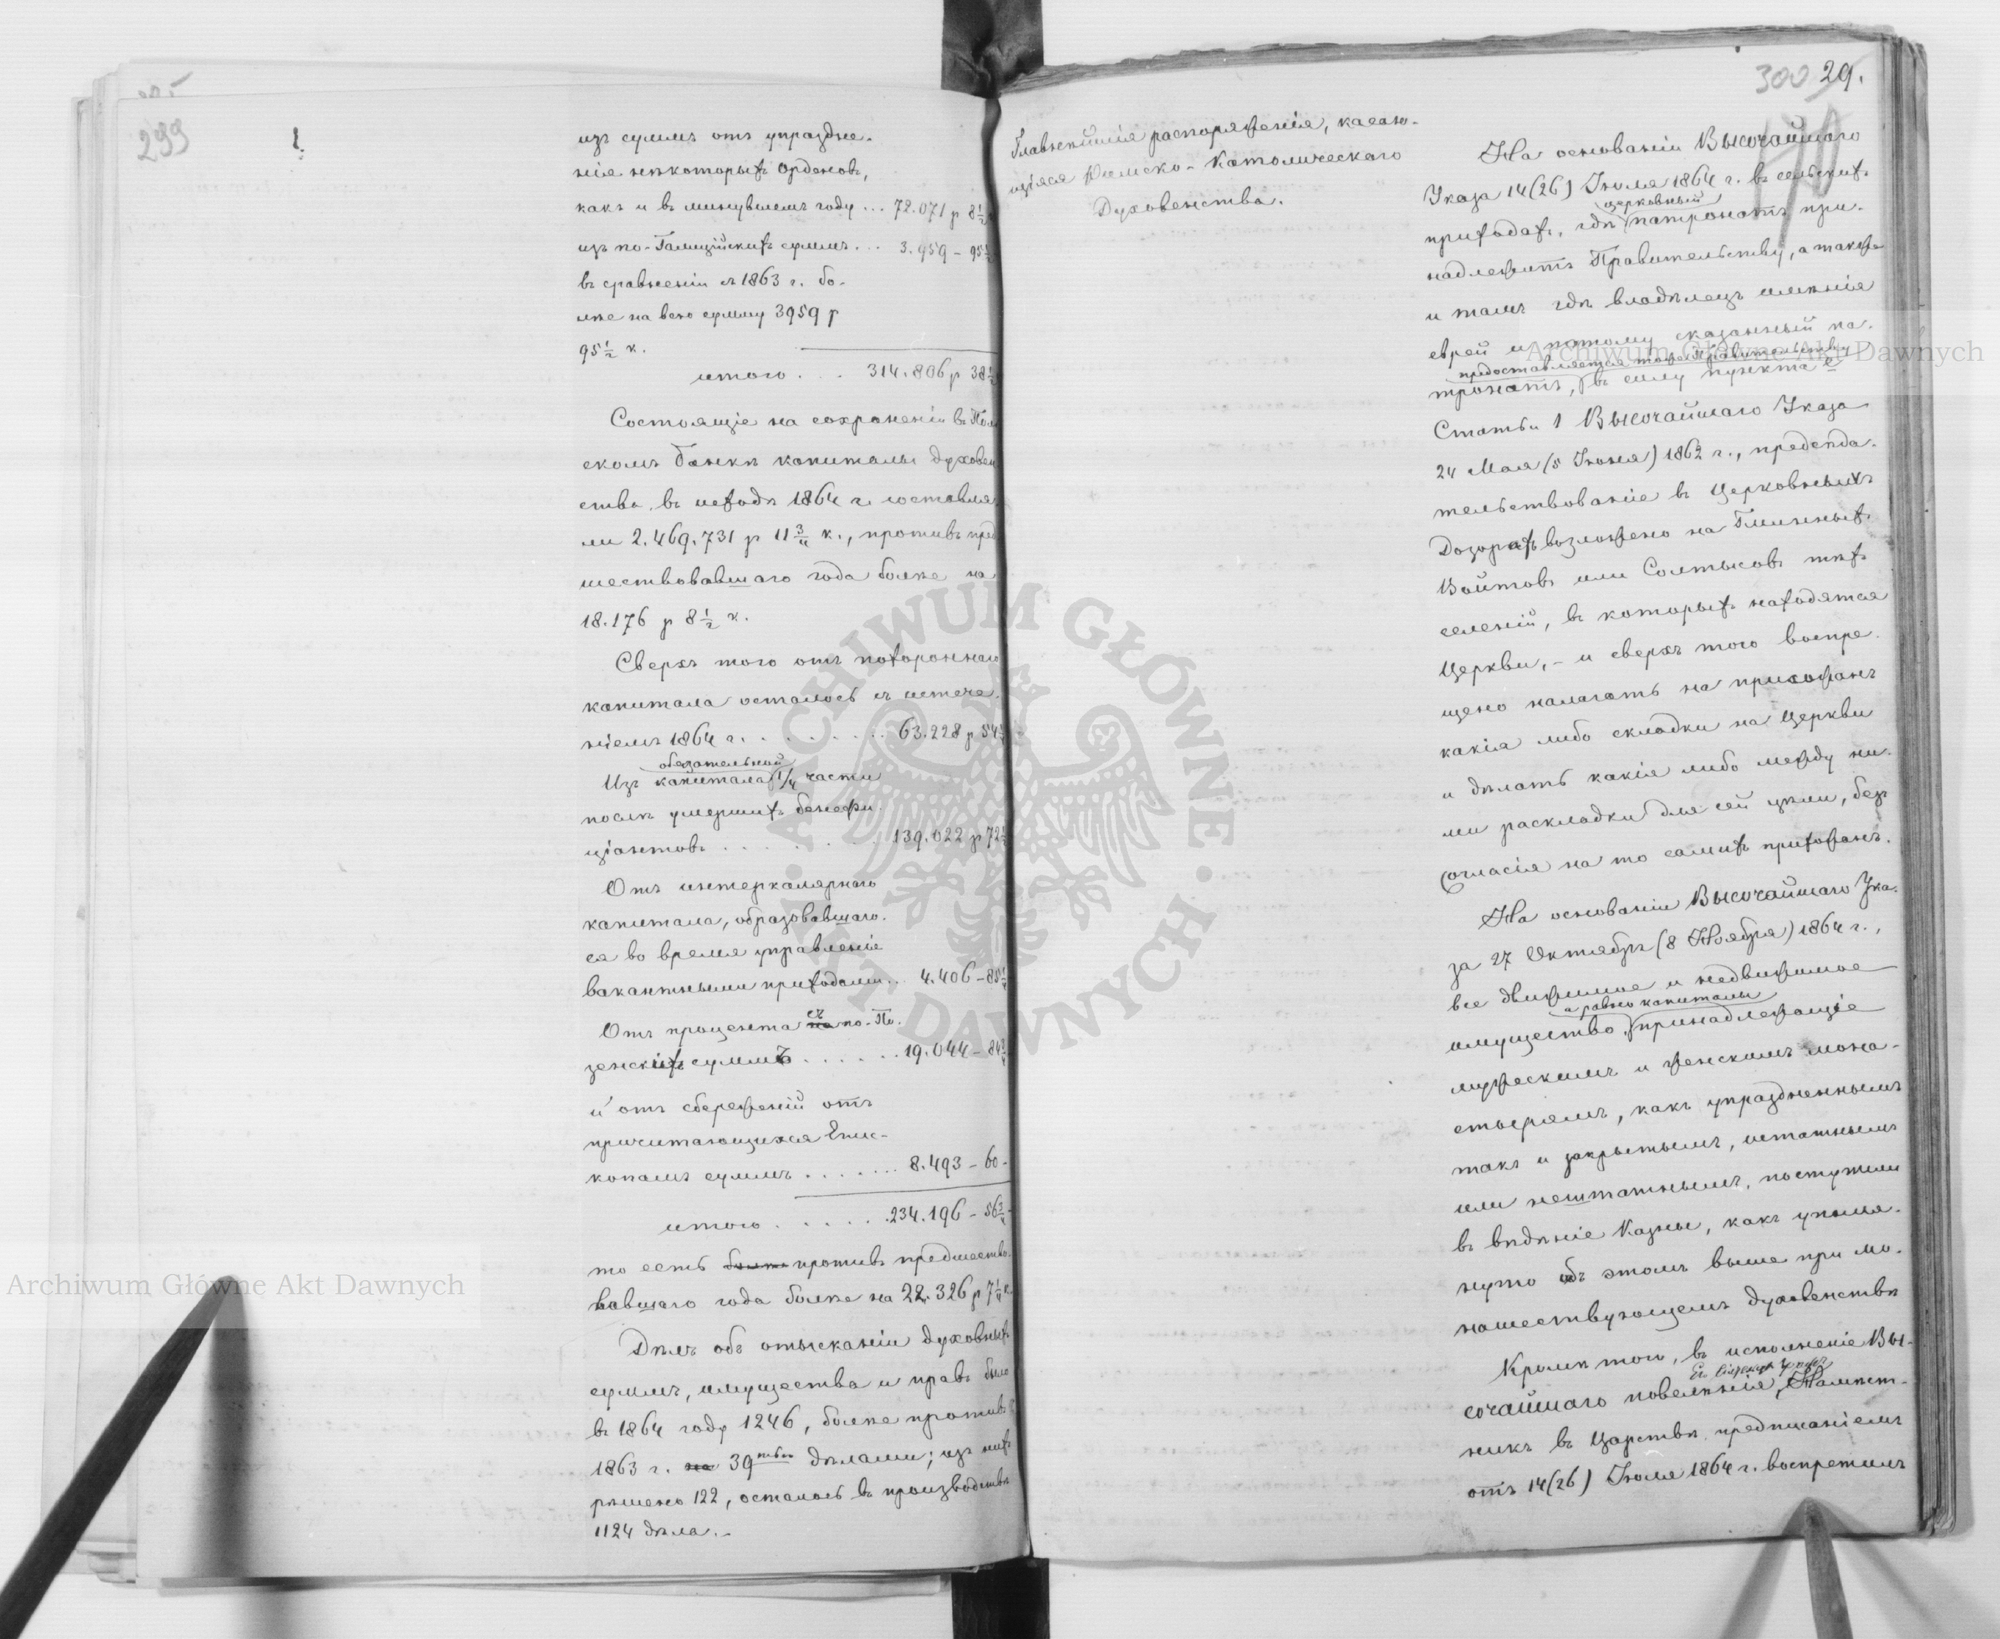 299
изъ суммъ отъ упраздне-
нія нѣкоторыхъ орденовъ,
какъ и въ минувшемъ году ... 72.071 р 8 1/2
изъ по-Галиційскихъ суммъ ... 3.959 - 95 1/2
въ сравненіи съ 1863 г. бо-
лѣе на всю сумму 3959 р
95 1/2 к.
итого . . . 314.806 р 38 1/2
Состоящіе на сохраненіи въ Поль
скомъ Банкѣ капиталы духовен
ства въ исходѣ 1864 г. составля
ли 2.469.731 р 11 3/4 к., противъ пред
шествовавшаго года болѣе на
18.176 р 8 1/2 к.
Сверхъ того отъ похороннаго
капитала осталось съ истече-
ніемъ 1864 г. . . . . . . . . 63.228 р 54
обязательной
Изъ капитала 1/4 части
послѣ умершихъ бенефи-
ціантовъ . . . . . . . . . 139.022 р 72
Отъ интеркалярнаго
капитала, образовавшаго-
ся во время управленія
вакантными приходами ... 4.406 - 85
съ
Отъ процента на по-По-
зенскихъ суммъ . . . . . . 19.044 - 84
и отъ сбереженій отъ
причитающихся Епис-
копамъ суммъ . . . . . . . 8.493 - 60 -
итого . . . . . . 234.196 - 56 3/4
то есть болѣе противъ предшество-
вавшаго года болѣе на 22.326 р 7 1/4 к.
Дѣлъ объ отысканіи духовныхъ
суммъ, имущества и правъ было
въ 1864 году 1246, болѣе противъ
1863 г. на 39 тью дѣлами; изъ нихъ
рѣшено 122, осталось въ производствѣ
1124 дѣла.-
300 29.
Главнѣйшія распоряженія, касаю-
щіяся Римско-Католическаго
Духовенства.
На основаніи Высочайшаго
Указа 14(26) Іюля 1864 г. въ сельскихъ
церковный
приходахъ, гдѣ патронатъ при-
надлежитъ Правительству, а также
и тамъ гдѣ владѣлецъ имѣнія
еврей и потому сказанный па-
предоставляется тоже Правительству
тронатъ, въ силу пункта е
Статьи 1 Высочайшаго Указа
24 Мая (5 Іюня) 1862 г., предсѣда-
тельствованіе въ Церковныхъ
Дозорахъ возложено на Гминныхъ
Войтовъ или Солтысовъ тѣхъ
селеній, въ которыхъ находятся
Церкви, - и сверхъ того воспре-
щено налагать на прихожанъ
какія либо складки на Церкви
и дѣлать какія либо между ни-
ми раскладки для сей цѣли, безъ
согласія на то самихъ прихожанъ.
На основаніи Высочайшаго Ука-
за 27 Октября (8 Ноября) 1864 г.,
все движимое и недвижимое
а равно капиталы
имущество, принадлежащіе
мужескимъ и женскимъ мона-
стырямъ, какъ упраздненнымъ
такъ и закрытымъ, штатнымъ
или нештатнымъ, поступили
въ вѣдѣніе Казны, какъ упомя-
нуто объ этомъ выше при мо-
нашествующемъ духовенствѣ
Кромѣ того, въ исполненіе Вы-
сочайшаго повелѣнія, Намѣст-
никъ въ Царствѣ предписаніемъ
отъ 14(26) Іюля 1864 г. воспретилъ
Archiwum Główne Akt Dawnych
Archiwum Główne Akt Dawnych
ARCHIWUM GŁÓWNE AKT DAWNYCH